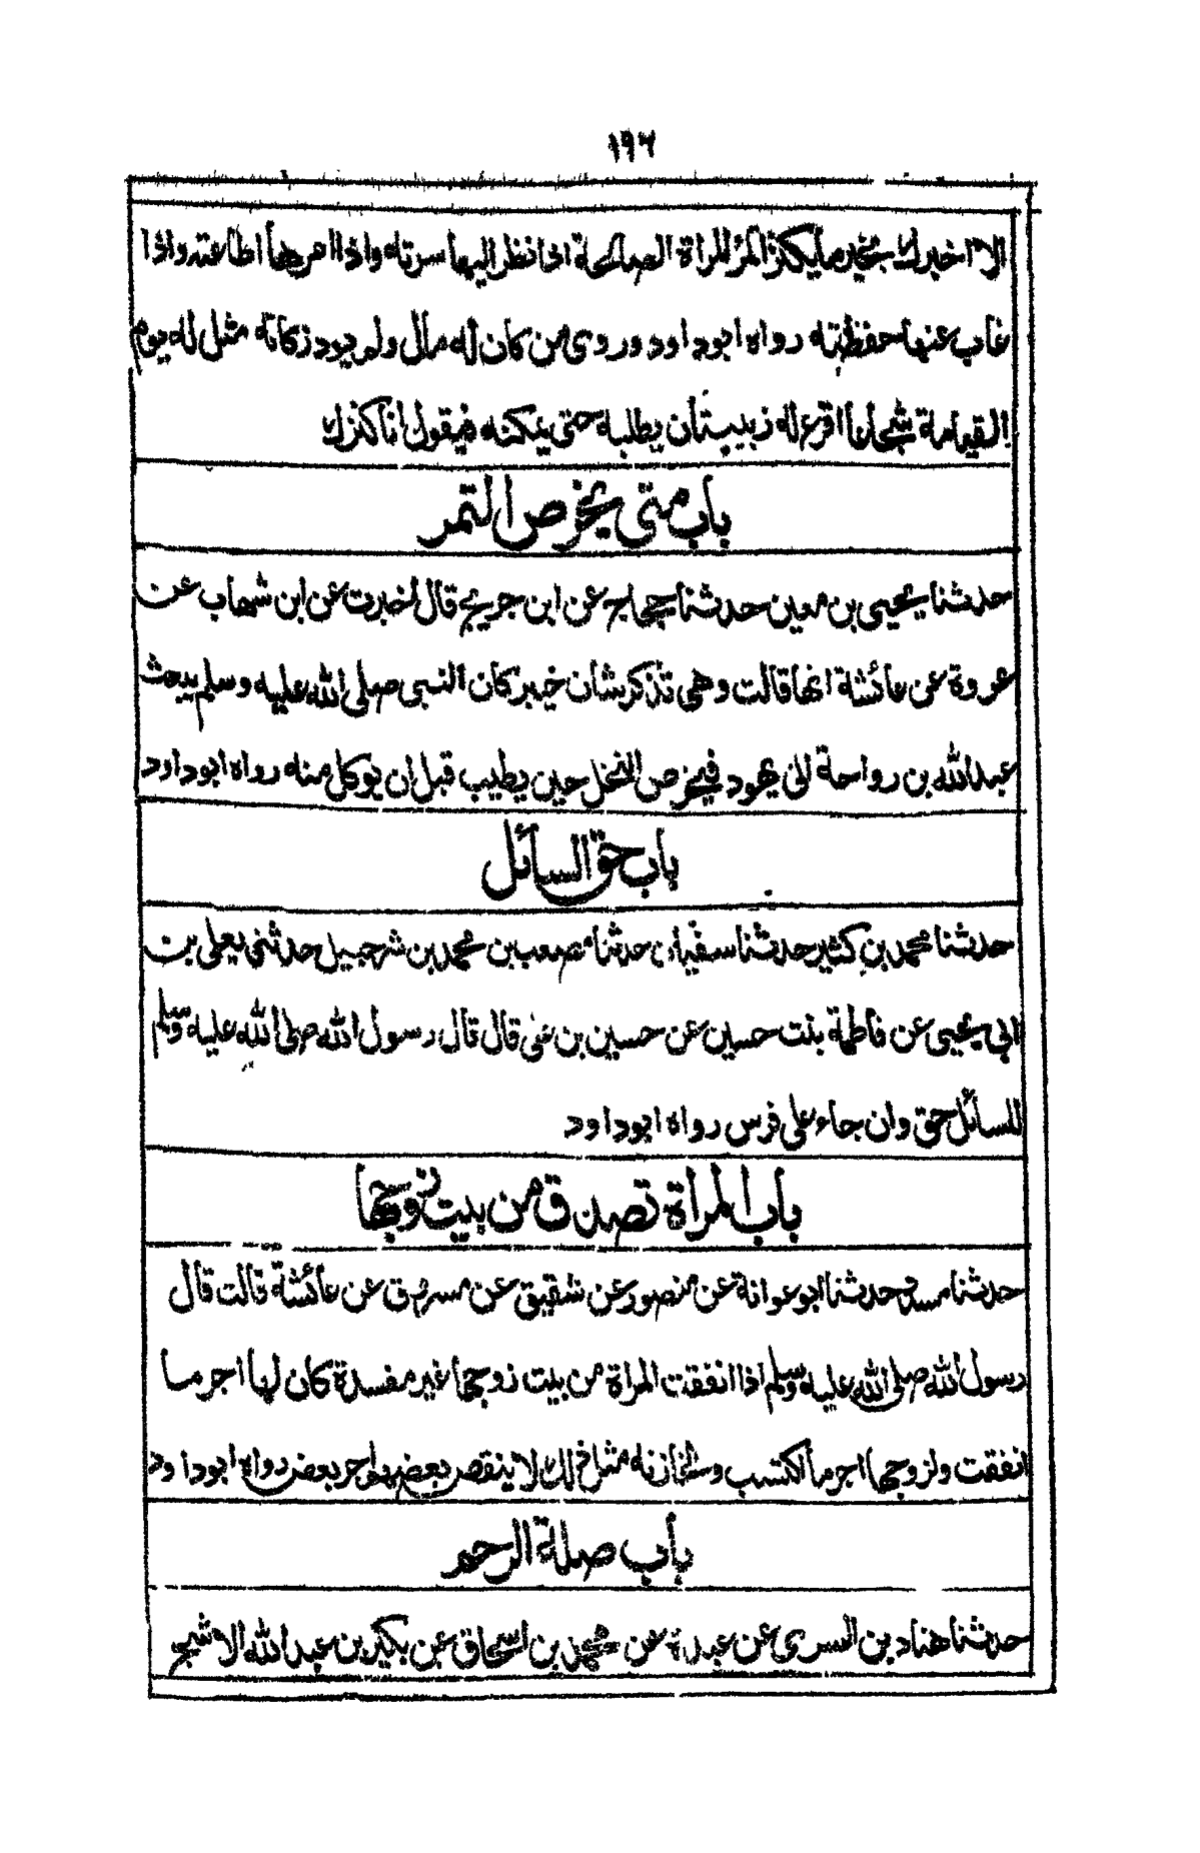 ١٩٦
الا اخبرك بخير ما يكنز المرء المراة الصالحة اذا نظر اليها سرته واذا امرها اطاعته واذا
غاب عنها حفظته رواه ابوداود وروى من كان له مال ولم يود زكاته مثل له يوم
القيامة شجاعا اقرع له زبيبتان يطلبه حتى يمكنه فيقول انا كنزك
باب متى يخرص التمر
حدثنا يحيى بن معين حدثنا حجاج عن ابن جريج قال اخبرت عن ابن شهاب عن
عروة عن عائشة انها قالت وهى تذكر شان خيبر كان النبى صلى الله عليه وسلم يبعث
عبدالله بن رواحة الى يهود فيخرص النخل حين يطيب قبل ان يوكل منه رواه ابوداود
باب حق السائل
حدثنا محمد بن كثير حدثنا سفيان حدثنا مصعب بن محمد بن شرحبيل حدثنى يعلى بن
ابى يحيى عن فاطمة بنت حسين عن حسين بن على قال قال رسول الله صلى الله عليه وسلم
للسائل حق وان جاء على فرس رواه ابوداود
باب المرأة تصدق من بيت زوجها
حدثنا مسدد حدثنا ابو عوانة عن منصور عن شقيق عن مسروق عن عائشة قالت قال
رسول الله صلى الله عليه وسلم اذا انفقت المراة من بيت زوجها غير مفسدة كان لها اجر ما
انفقت ولزوجها اجر ما اكتسب ولخازنه مثل ذلك لا ينقص بعضهم اجر بعض رواه ابوداود
باب صلة الرحم
حدثنا هناد بن السرى عن عبدة عن محمد بن اسحاق عن بكير بن عبدالله الاشج